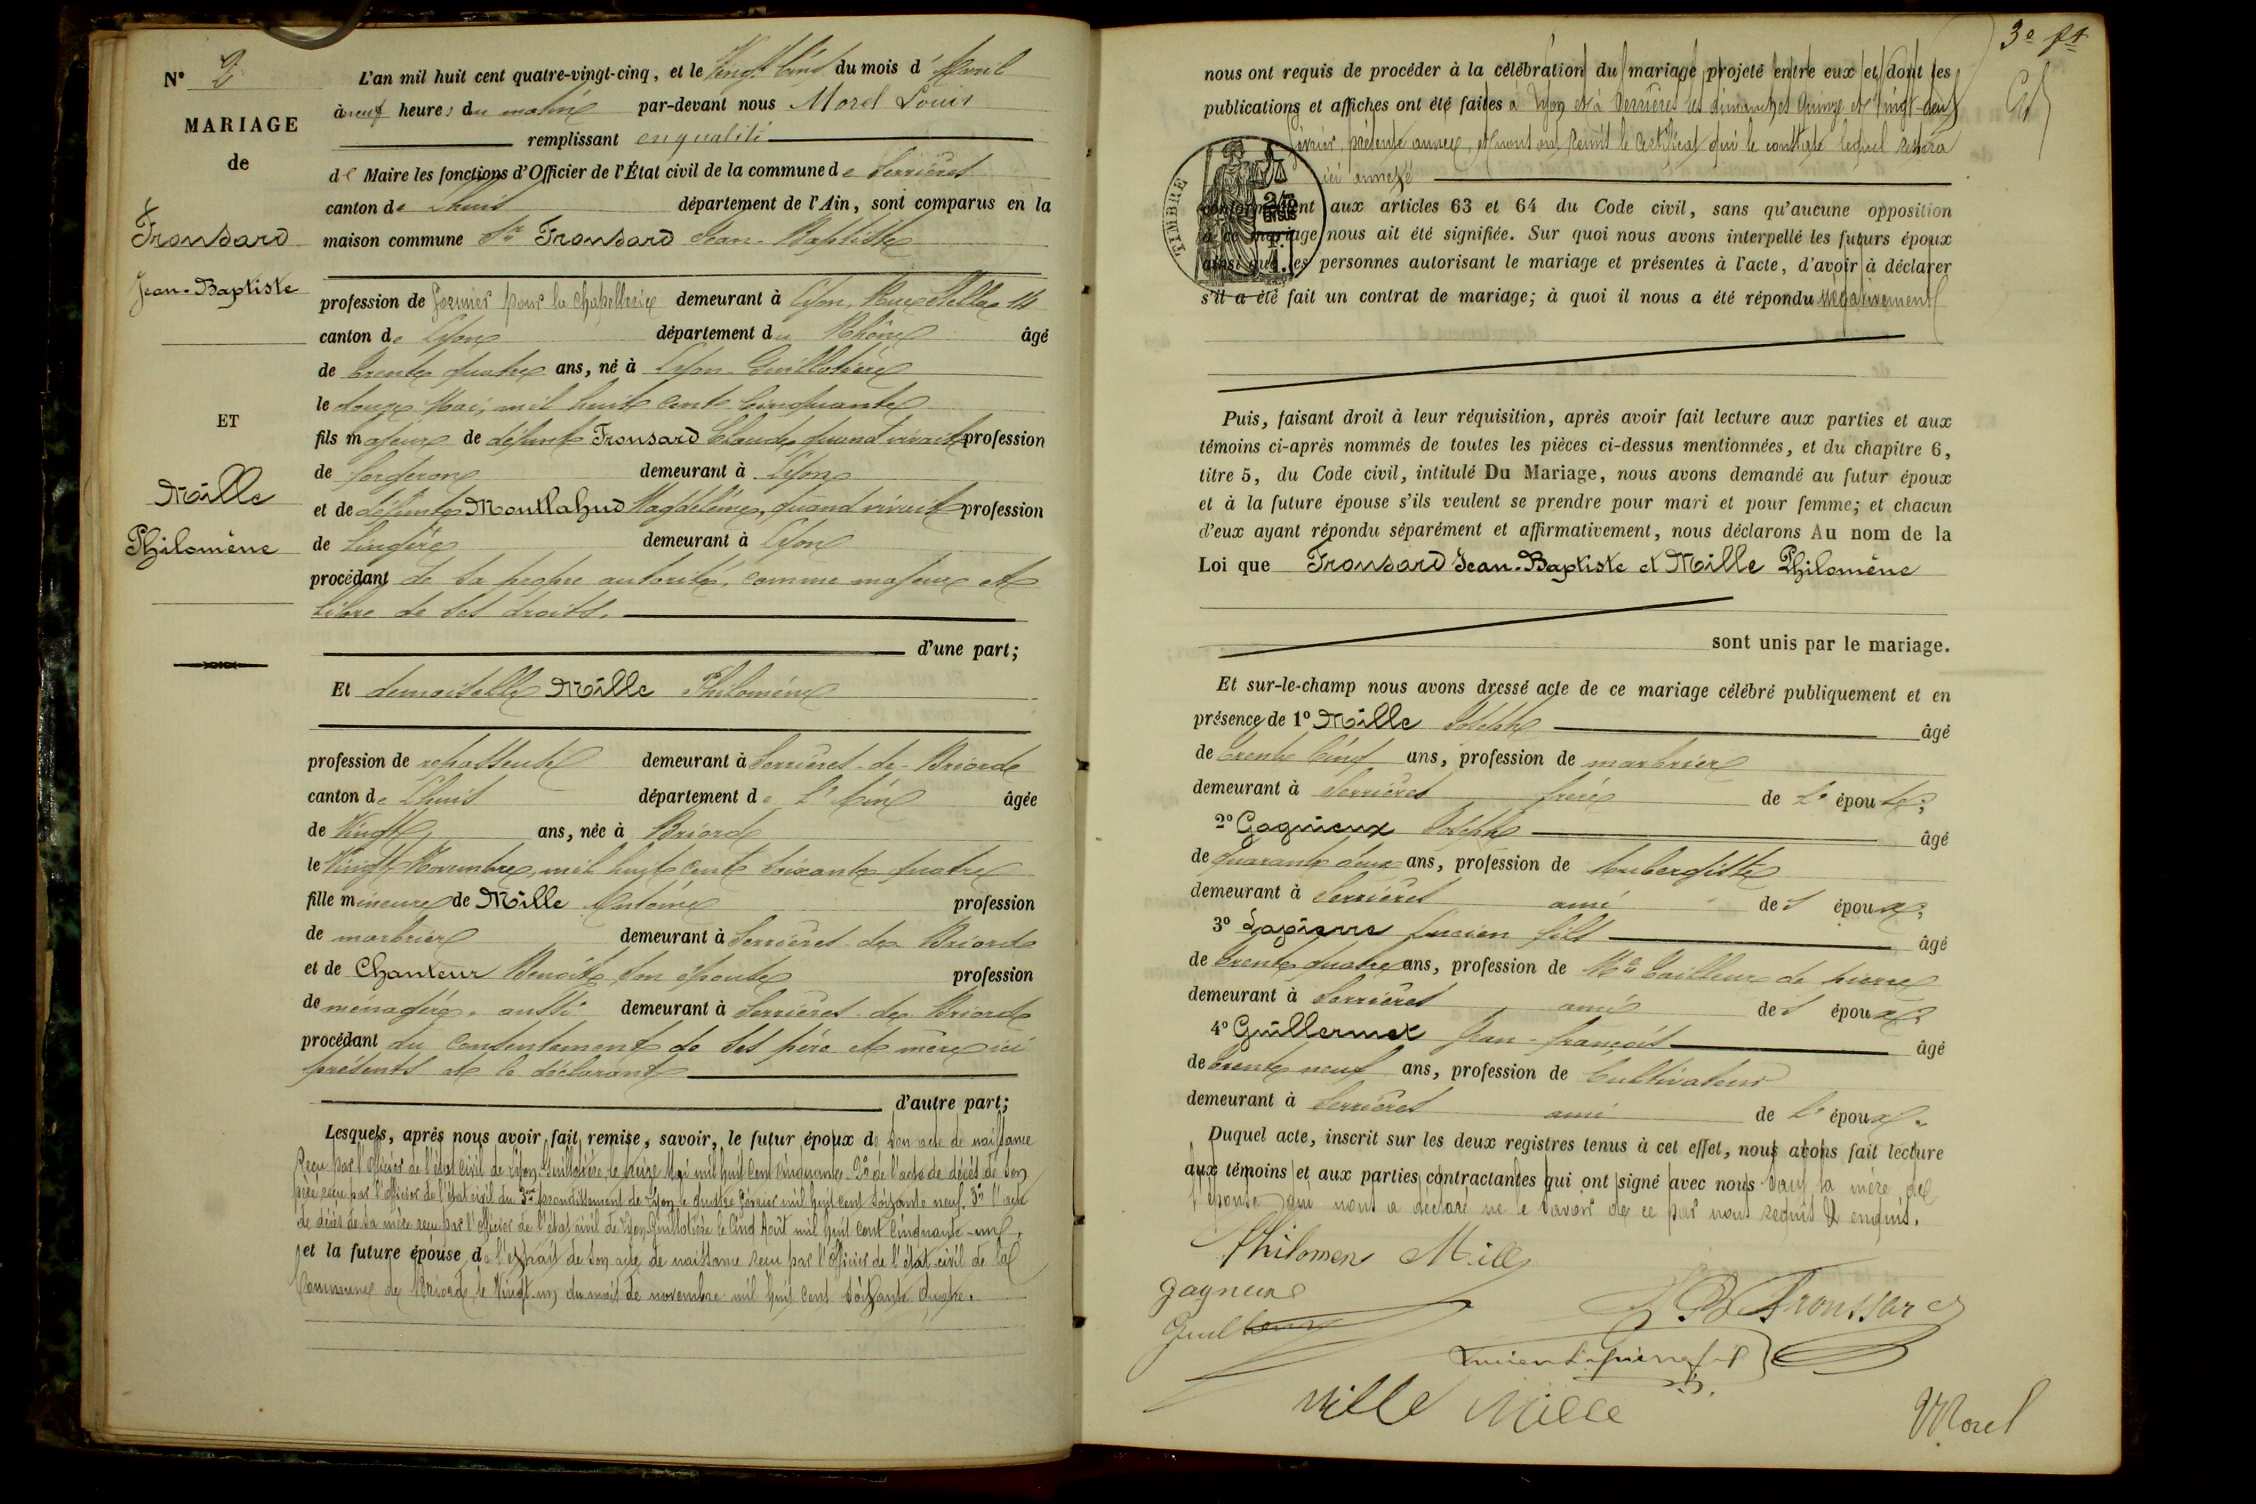 N° 2
MARIAGE
de
Fronsard
Jean-Baptiste
ET
Mille
Philomène
L'an mil huit cent quatre-vingt-cinq, et le Vingt Cinq du mois d'Avril
à neuf heures du matin par-devant nous Morel Louis
remplissant en qualité
de Maire les fonctions d'Officier de l'État civil de la commune de Serrières
canton de Lhuis département de l'Ain, sont comparus en la
maison commune Sr Fronsard Jean-Baptiste
profession de formier pour la chapellerie demeurant à Lyon, Rue Stella 14
canton de Lyon département du Rhône âgé
de trente quatre ans, né à Lyon-Guillotière
le douze Mai, mil huit cent Cinquante
fils majeur de défunt Fronsard Claude, quand vivait profession
de forgeron demeurant à Lyon
et de défunte Montlahud Magdeleine, quand vivait profession
de lingère demeurant à Lyon
procédant de sa propre autorité, comme majeur et
libre de ses droits.
d'une part;
Et demoiselle Mille Philomène
profession de repasseuse demeurant à Serrières-de-Briord
canton de Lhuis département de l'Ain âgée
de Vingt ans, née à Briord
le Vingt Novembre, mil huit cent soixante quatre
fille mineure de Mille Antoine profession
de marbrier demeurant à Serrières-de-Briord
et de Chanteur Benoîte son épouse profession
de ménagère, aussi demeurant à Serrières-de-Briord
procédant du consentement de ses père et mère ici
présents et le déclarant
d'autre part;
Lesquels, après nous avoir fait remise, savoir, le futur époux de son acte de naissance
reçu par l'officier de l'état civil de Lyon-Guillotière le treize Mai mil huit cent cinquante. 2° de l'acte de décès de son
père reçu par l'officier de l'état civil du 3me arrondissement de Lyon le quatre février mil huit cent soixante neuf. 3° l'acte
de décès de sa mère reçu par l'officier de l'état civil de Lyon-Guillotière le cinq Août mil huit cent cinquante-une,
et la future épouse de l'extrait de son acte de naissance reçu par l'officier de l'état civil de la
Commune de Briord le Vingt-un du mois de novembre mil huit cent soixante quatre.
3e ft
nous ont requis de procéder à la célébration du mariage projeté entre eux et dont les
publications et affiches ont été faites à Lyon et à Serrières les dimanches Quinze et Vingt-deux
février, présente année, et nous ont remit le certificat qui le constate lequel restera
ici annexé
TIMBRE
conformément aux articles 63 et 64 du Code civil, sans qu'aucune opposition
à ce mariage nous ait été signifiée. Sur quoi nous avons interpellé les futurs époux
ainsi que les personnes autorisant le mariage et présentes à l'acte, d'avoir à déclarer
s'il a été fait un contrat de mariage; à quoi il nous a été répondu négativement
Puis, faisant droit à leur réquisition, après avoir fait lecture aux parties et aux
témoins ci-après nommés de toutes les pièces ci-dessus mentionnées, et du chapitre 6,
titre 5, du Code civil, intitulé Du Mariage, nous avons demandé au futur époux
et à la future épouse s'ils veulent se prendre pour mari et pour femme; et chacun
d'eux ayant répondu séparément et affirmativement, nous déclarons Au nom de la
Loi que Fronsard Jean-Baptiste et Mille Philomène
sont unis par le mariage.
Et sur-le-champ nous avons dressé acte de ce mariage célébré publiquement et en
présence de 1° Mille Joseph âgé
de trente Cinq ans, profession de marbrier
demeurant à Serrières frère de l'épouse;
2° Gagnieux Joseph âgé
de quarante deux ans, profession de Aubergiste
demeurant à Serrières ami des époux;
3° Lapierre Lucien fils âgé
de trente quatre ans, profession de Md tailleur de pierre
demeurant à Serrières ami des époux;
4° Guillermet Jean-François âgé
de trente neuf ans, profession de Cultivateur
demeurant à Serrières ami de l'époux.
Duquel acte, inscrit sur les deux registres tenus à cet effet, nous avons fait lecture
aux témoins et aux parties contractantes qui ont signé avec nous sauf la mère de
l'épouse qui nous a déclaré ne le savoir de ce par nous requis & enquis.
Philomen Mille
Gagneux
J B Fronssard
Lucien Lapierre fils
Mille Mille
Morel